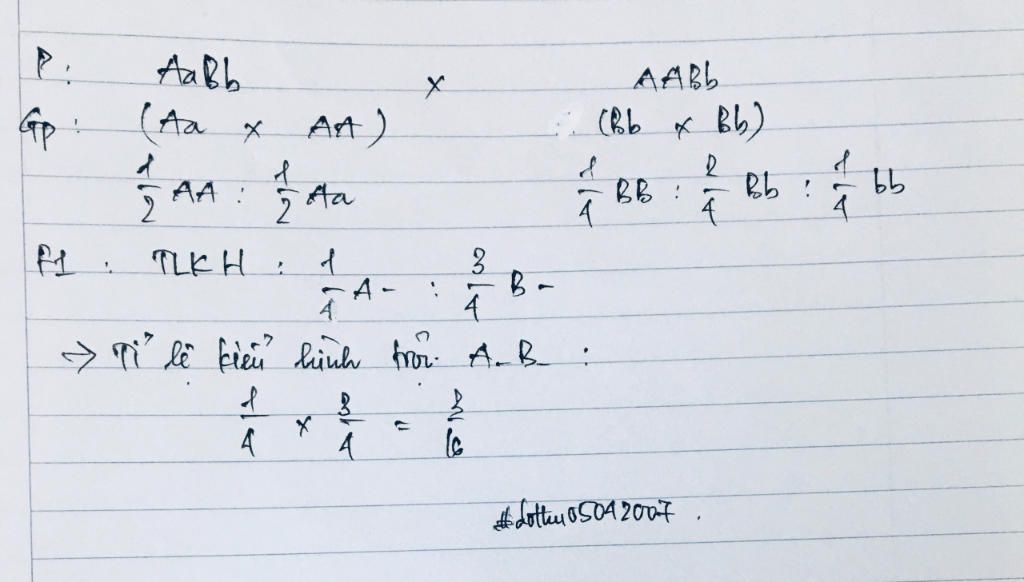 P: AaBb x AABb
Gp: (Aa x AA) (Bb x Bb)
1/2 AA : 1/2 Aa 1/4 BB : 2/4 Bb : 1/4 bb
F1 : TLKH : 1/4 A- : 3/4 B-
→ Tỉ lệ kiểu hình trội A-B- :
1/4 x 3/4 = 3/16
#dothu05042007.